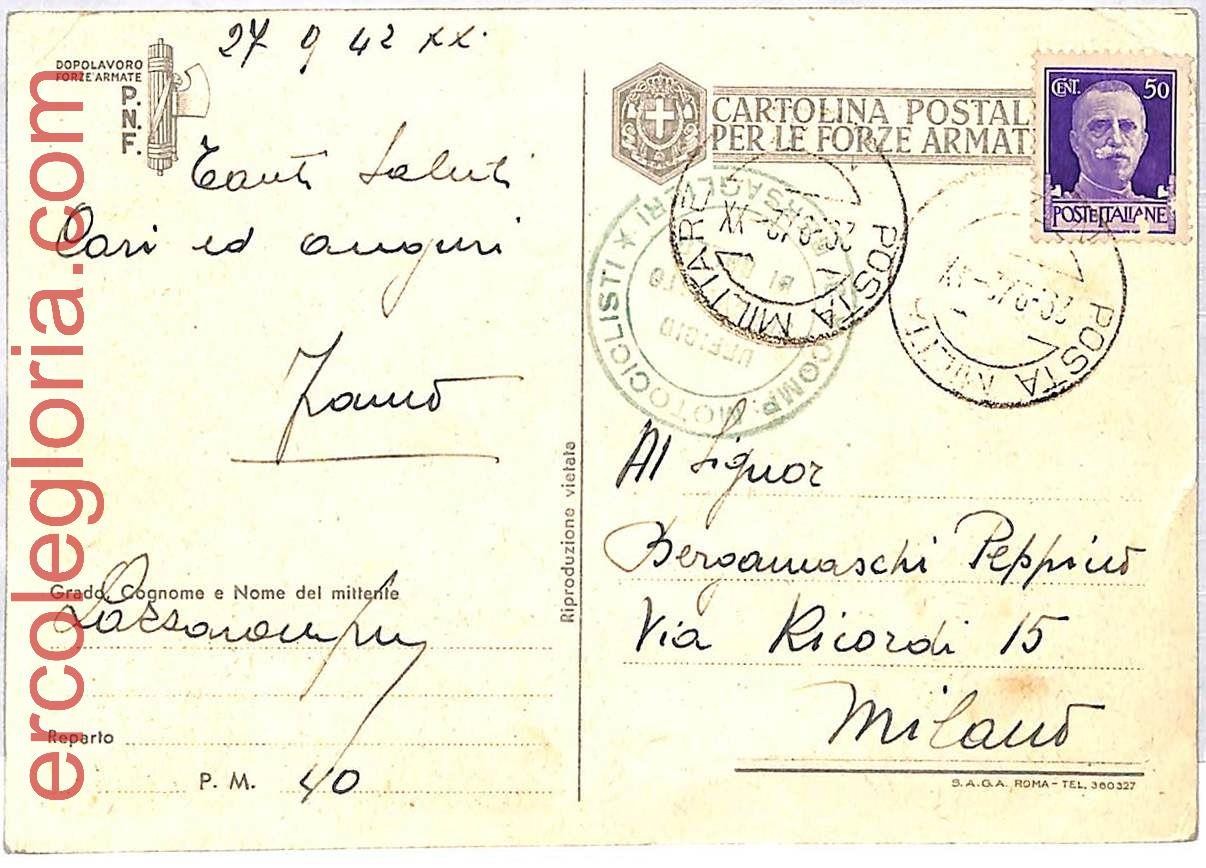 27 9 42 XX.
DOPOLAVORO
FORZE ARMATE
P.
N.
F.
Tanti saluti
Cari ed auguri
Grado, Cognome e Nome del mittente
Reparto
P. M. 40
Riproduzione vietata
CARTOLINA POSTAL
PER LE FORZE ARMAT
CENT. 50
POSTE ITALIANE
POSTA MILITARE
POSTA MILIT
COMP. MOTOCICLISTI ★
BERSAGLIERI
UFFICIO
Al Signor
Bergamaschi Peppino
Via Ricordi 15
Milano
S.A.G.A. ROMA - TEL. 360327
ercolegloria.com